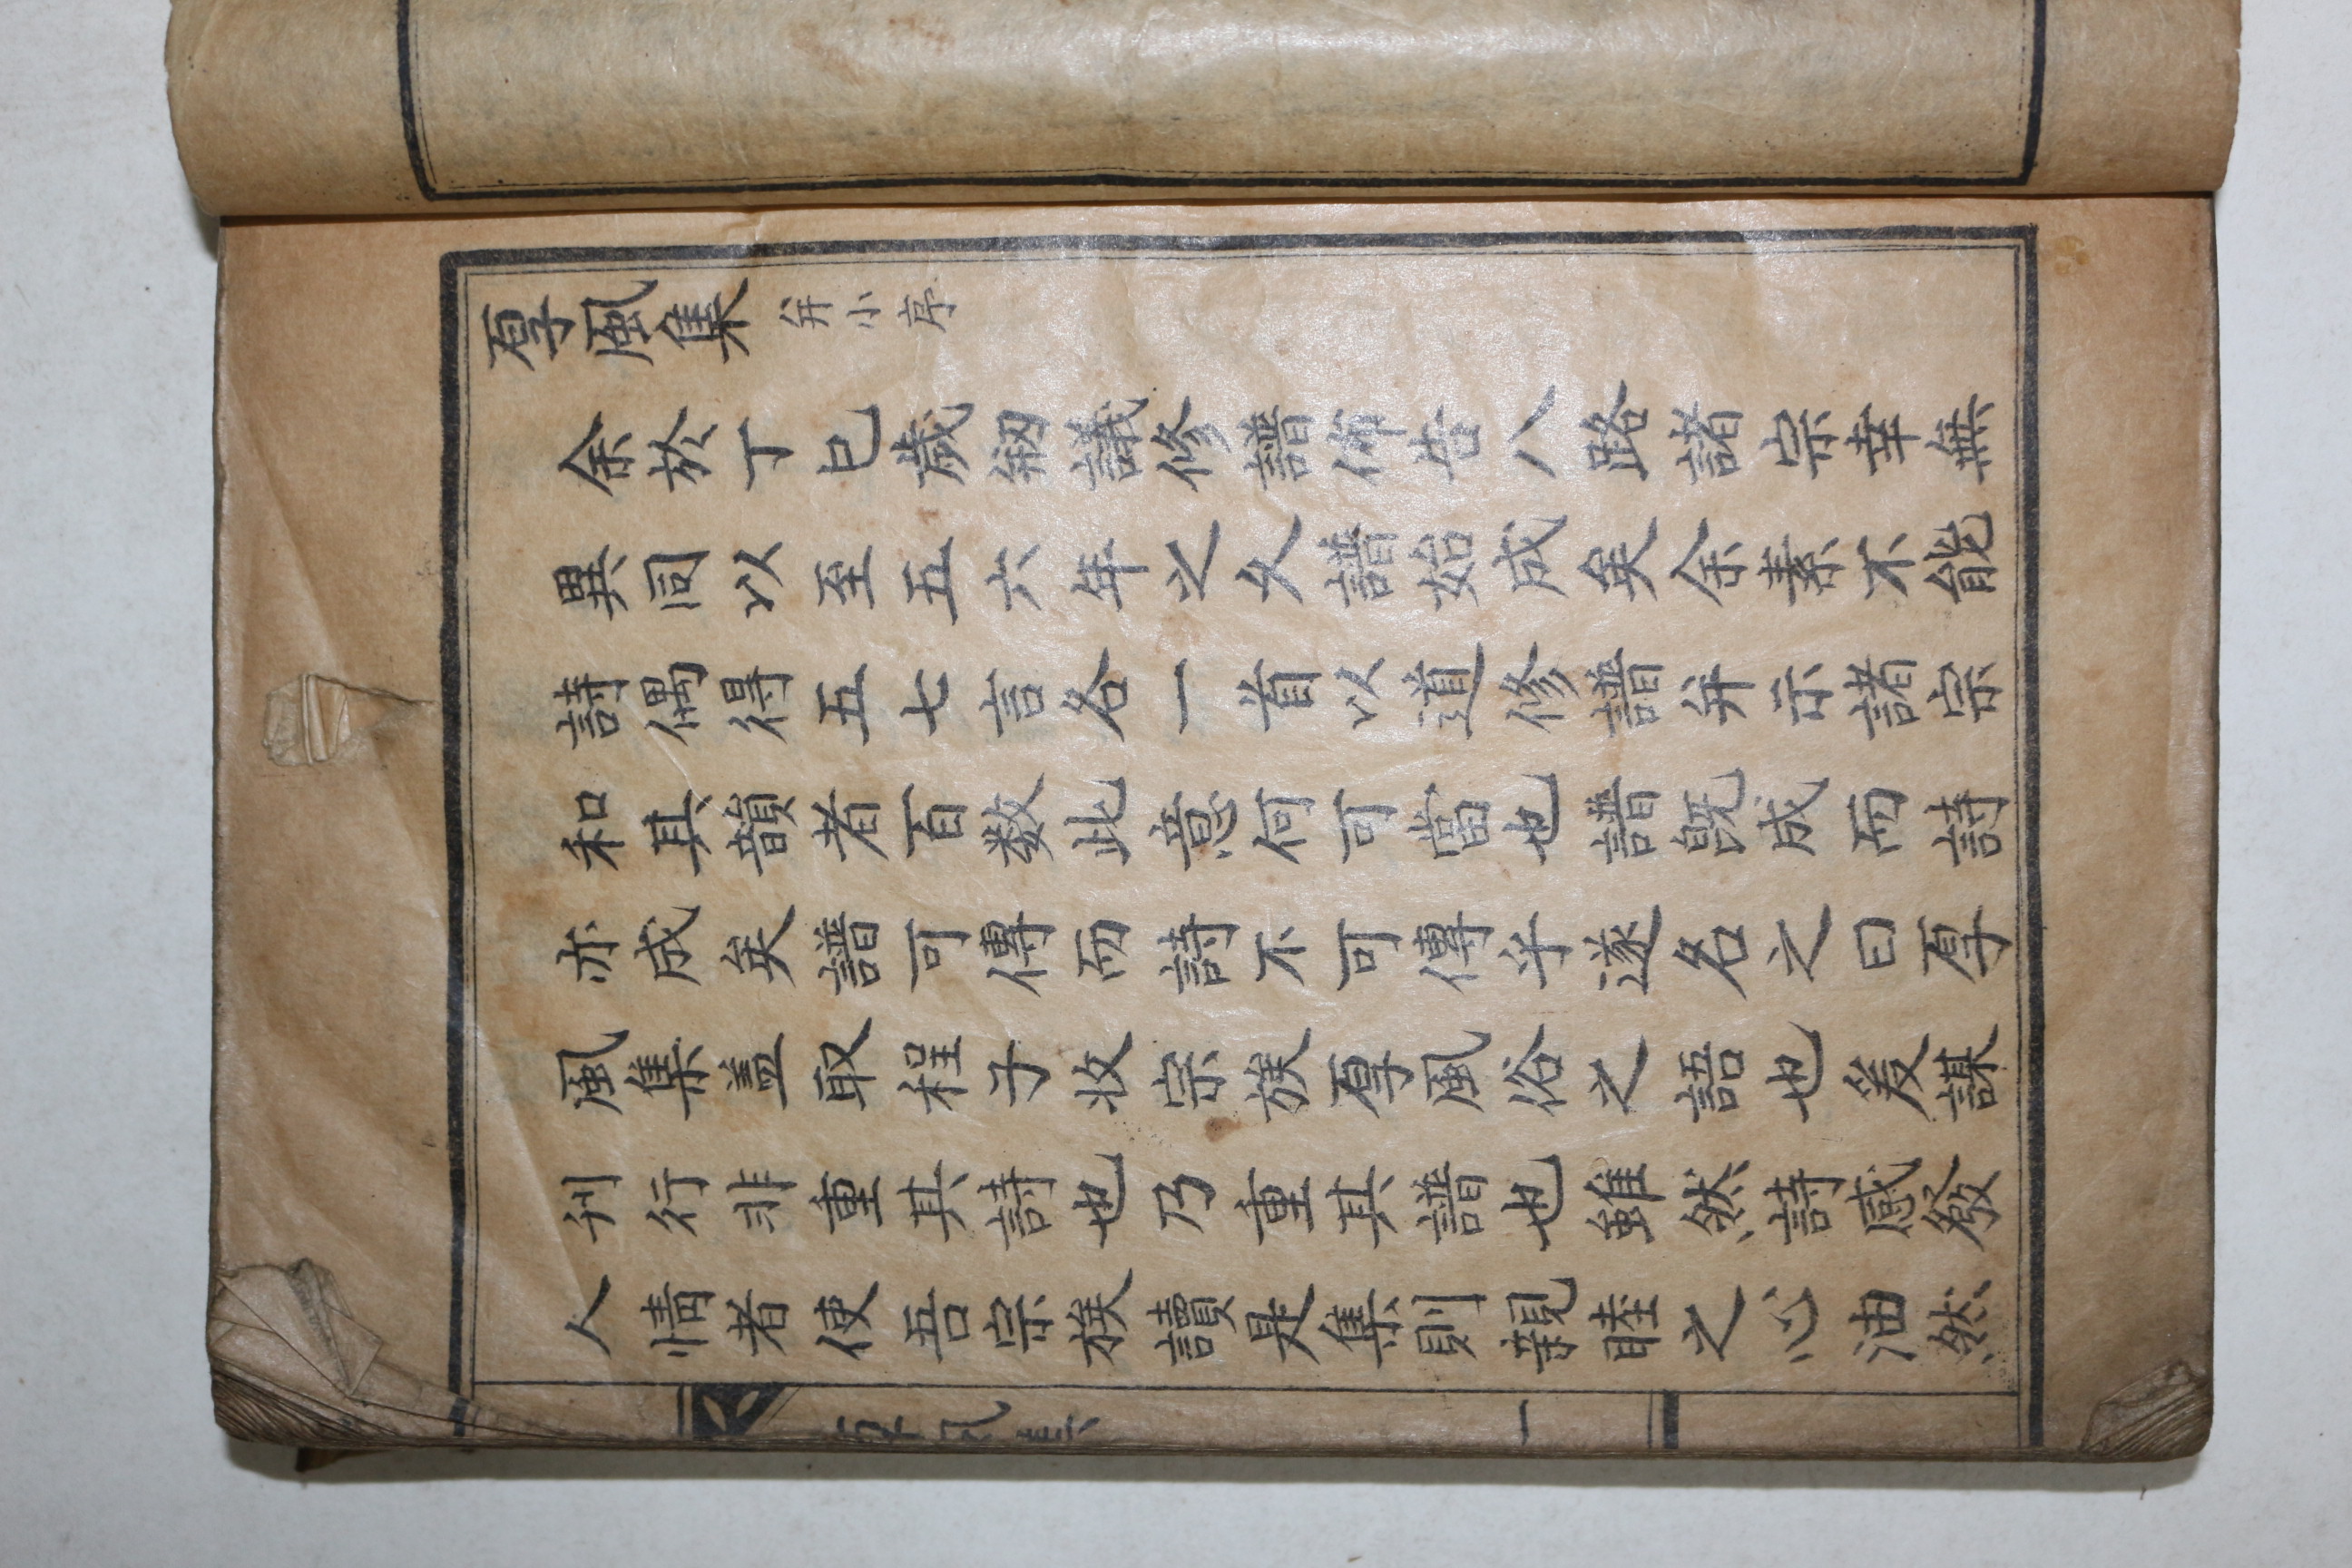 厚風集 弁小序
余於丁巳歲刱議修譜佈告八路諸宗幸無
異同以至五六年之久譜始成矣余素不能
詩偶得五七言各一首以道修譜弁示諸宗
和其韻者百数此意何可當也譜旣成而詩
亦成矣譜可傳而詩不可傳乎遂名之曰厚
風集盖取程子收宗族厚風俗之語也爰謀
刊行非重其詩也乃重其譜也雖然詩感發
人情者使吾宗族讀是集則親睦之心油然
厚風集
一